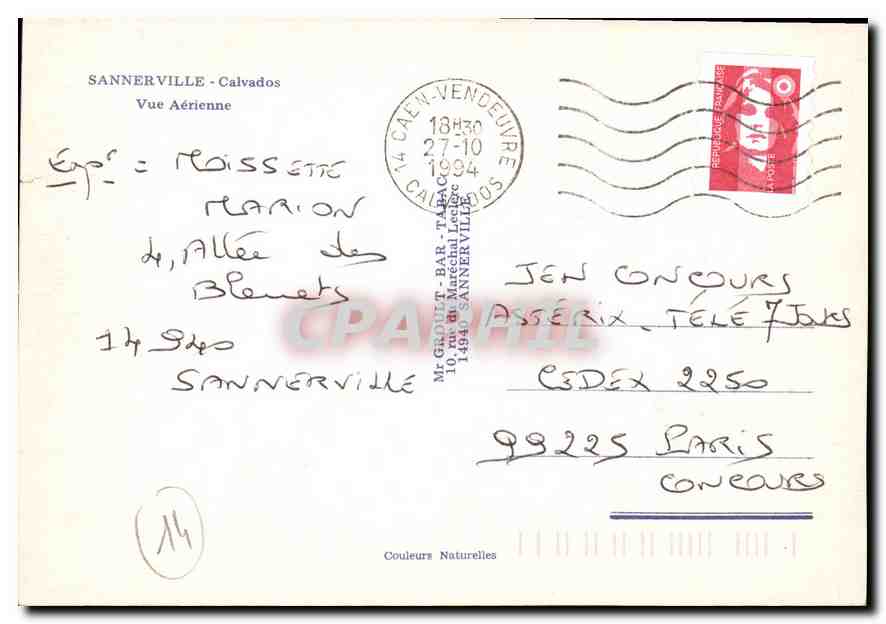 SANNERVILLE - Calvados
Vue Aérienne
14 CAEN-VENDEUVRE
18H30
27-10
1994
CALVADOS
REPUBLIQUE FRANÇAISE
LA POSTE
Expr = MOISSETTE
MARION
4, Allée des
Bleuets
14940
SANNERVILLE
Mr GROULT - BAR - TABAC
10, rue du Maréchal Leclerc
14940 SANNERVILLE
CPAPHIL
JEU CONCOURS
ASSÉRIX - TÉLÉ 7 JOURS
CEDEX 2250
99225 PARIS
CONCOURS
14
Couleurs Naturelles